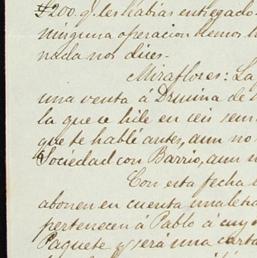 $200. q. les habias entregado
ninguna operacion hemos
nada nos dices.
Miraflores: La
una venta á Druina de
la que se hile en ceis sem
que te hablé antes, aun no
Sociedad con Barrio, aun
Con esta fecha
abonen en cuenta una letra
pertenecen á Pablo á cuyo
Paquete y será una carta